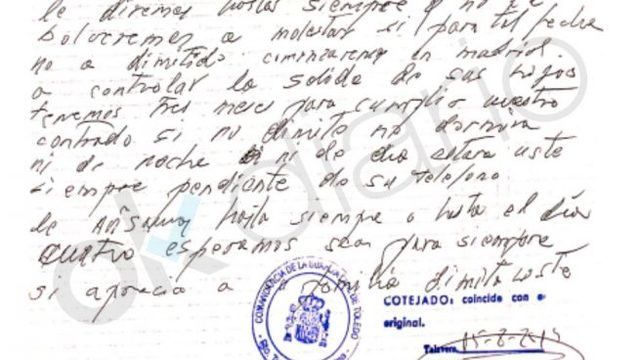 le diremos hasta siempre y no le
bolveremos a molestar si para tal fecha
no a dimitido comenzaremos en madrid
a controlar la salida de sus hijos
tenemos tres meses para cumplir nuestro
contrado si no dimite no dormira
ni de noche ni de dia estara uste
siempre pendiente de su telefono
le hasta siempre o hasta el dia
cuatro esperamos sea para siempre
si aprecia a familia dimita uste
COMANDANCIA DE LA GUARDIA CIVIL DE TOLEDO
COTEJADO: coincide con
original.
Talavera
okdiario